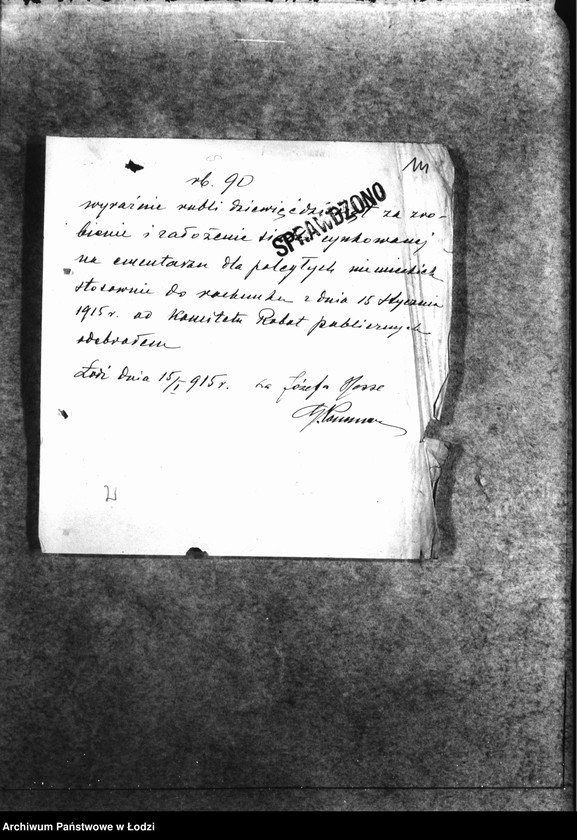 111
rb. 90
wyraźnie rubli dziewięćdziesiąt za zro-
bienie i założenie cynkowanej
SPRAWDZONO
na cmentarzu dla poległych niemieckich
stosownie do rachunku z dnia 15 stycznia
1915 r. od Komitetu Robót publicznych
odebrałem
Łódź dnia 15/I 915 r. za Józefa Hesse
Archiwum Państwowe w Łodzi